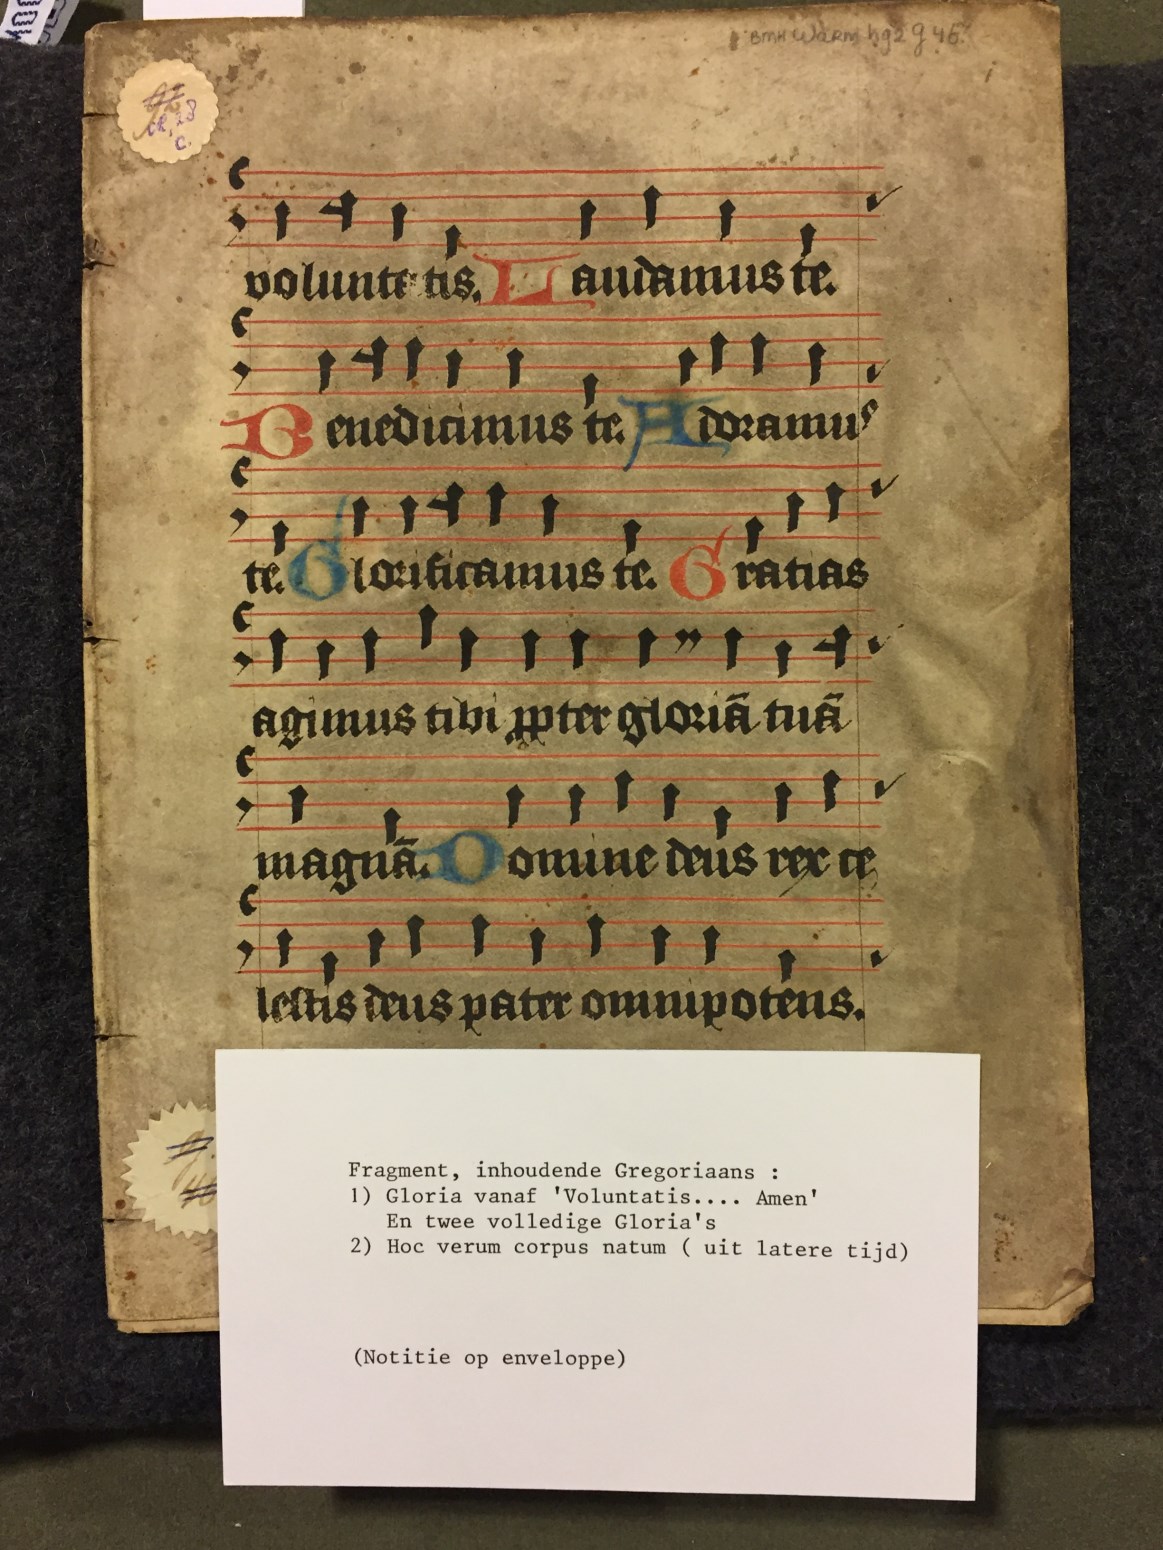 BMH Warm hg2g45.
CR 28
C.
voluntatis. Laudamus te.
Benedicimus te. Adoramus
te. Glorificamus te. Gratias
agimus tibi ꝓpter gloriā tuā
magnā. Domine deus rex ce
lestis deus pater omnipotens.
Fragment, inhoudende Gregoriaans :
1) Gloria vanaf 'Voluntatis.... Amen'
En twee volledige Gloria's
2) Hoc verum corpus natum ( uit latere tijd)
(Notitie op enveloppe)